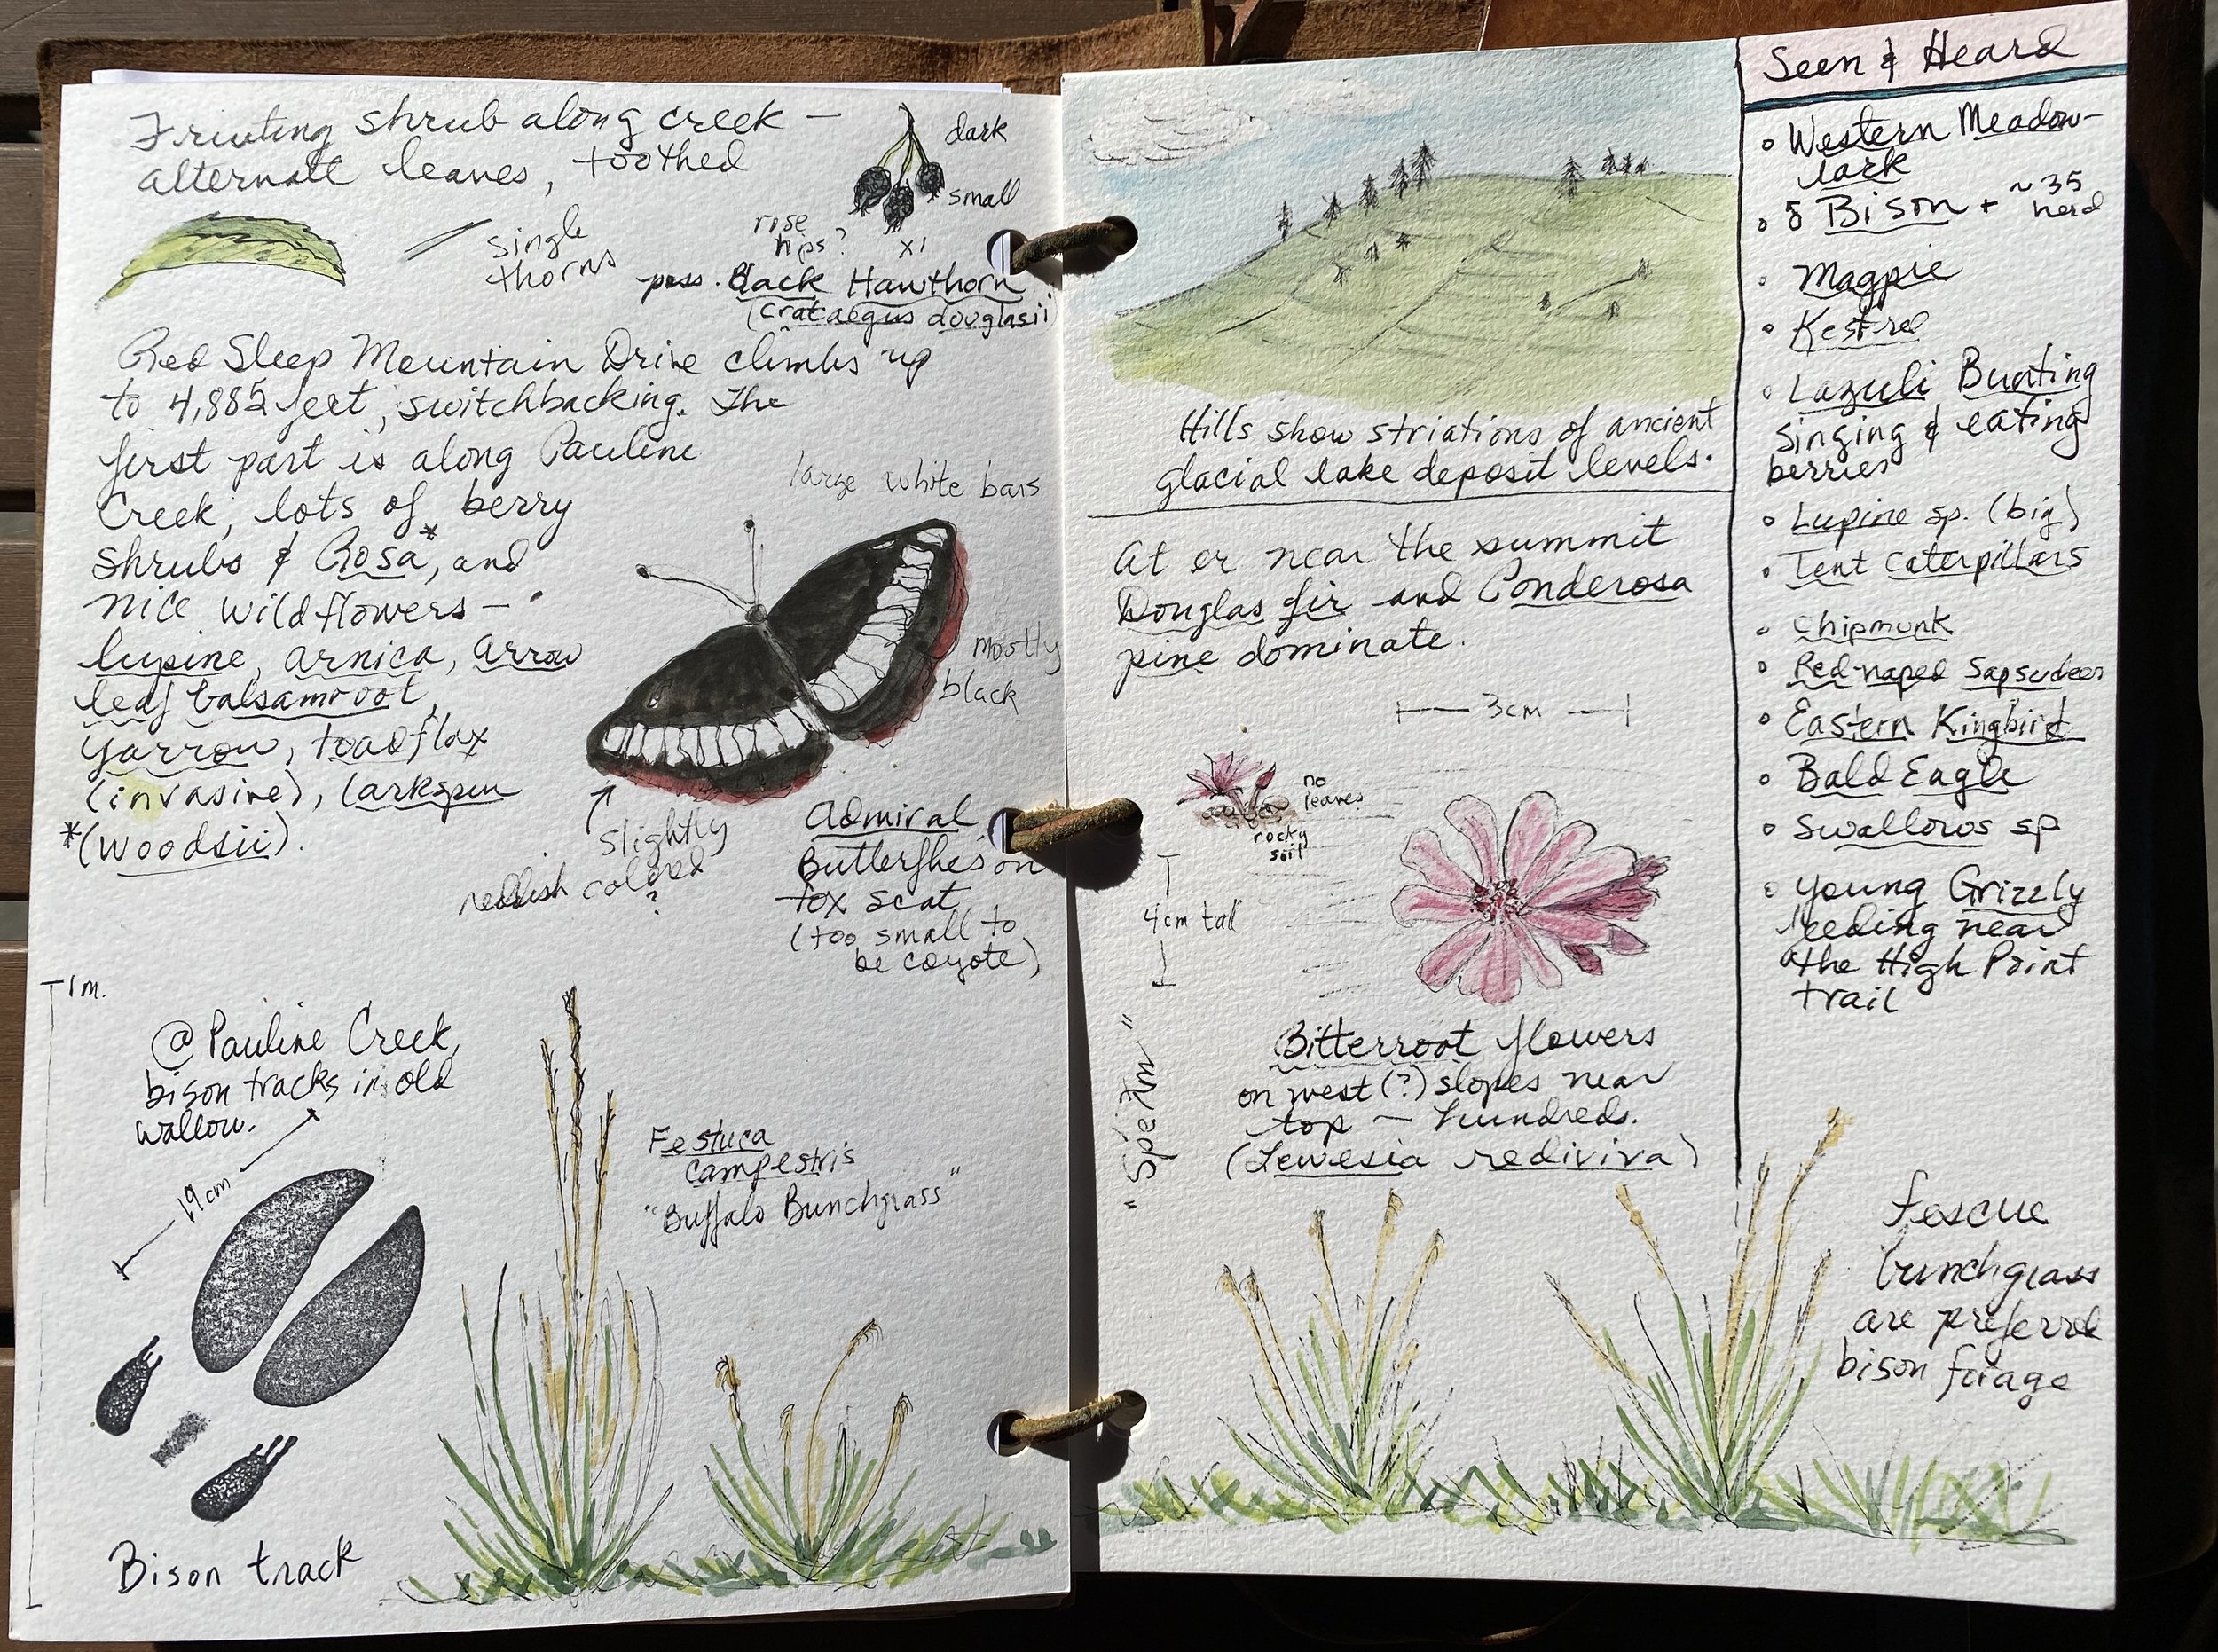 Fruiting shrub along creek —
alternate leaves, toothed
dark
small
single
thorns
rose
hips?
x1
poss. Black Hawthorn
(Crataegus douglasii)
Red Sleep Mountain Drive climbs up
to 4,885 feet, switchbacking. The
first part is along Pauline
Creek, lots of berry
shrubs & Rosa*, and
nice wildflowers —
lupine, arnica, arrow
leaf balsamroot,
yarrow, toadflax
(invasive), larkspur
*(woodsii).
large white bars
mostly
black
slightly
reddish colored
?
Admiral
Butterflies on
fox scat
(too small to
be coyote)
1 m.
@ Pauline Creek,
bison tracks in old
wallow.
19 cm
Bison track
Festuca
campestris
"Buffalo Bunchgrass"
Hills show striations of ancient
glacial lake deposit levels.
At or near the summit
Douglas fir and Ponderosa
pine dominate.
3cm
no
leaves
rocky
soil
4cm tall
Bitterroot flowers
on west (?) slopes near
top — hundreds.
(Lewesia rediviva)
Seen & Heard
• Western Meadow-
lark
• 5 Bison + ~35
herd
• Magpie
• Kestrel
• Lazuli Bunting
singing & eating
berries
• Lupine sp. (big)
• Tent Caterpillars
• Chipmunk
• Red-naped Sapsucker
• Eastern Kingbird
• Bald Eagle
• Swallows sp
• young Grizzly
feeding near
the High Point
trail
fescue
bunchgrass
are preferred
bison forage